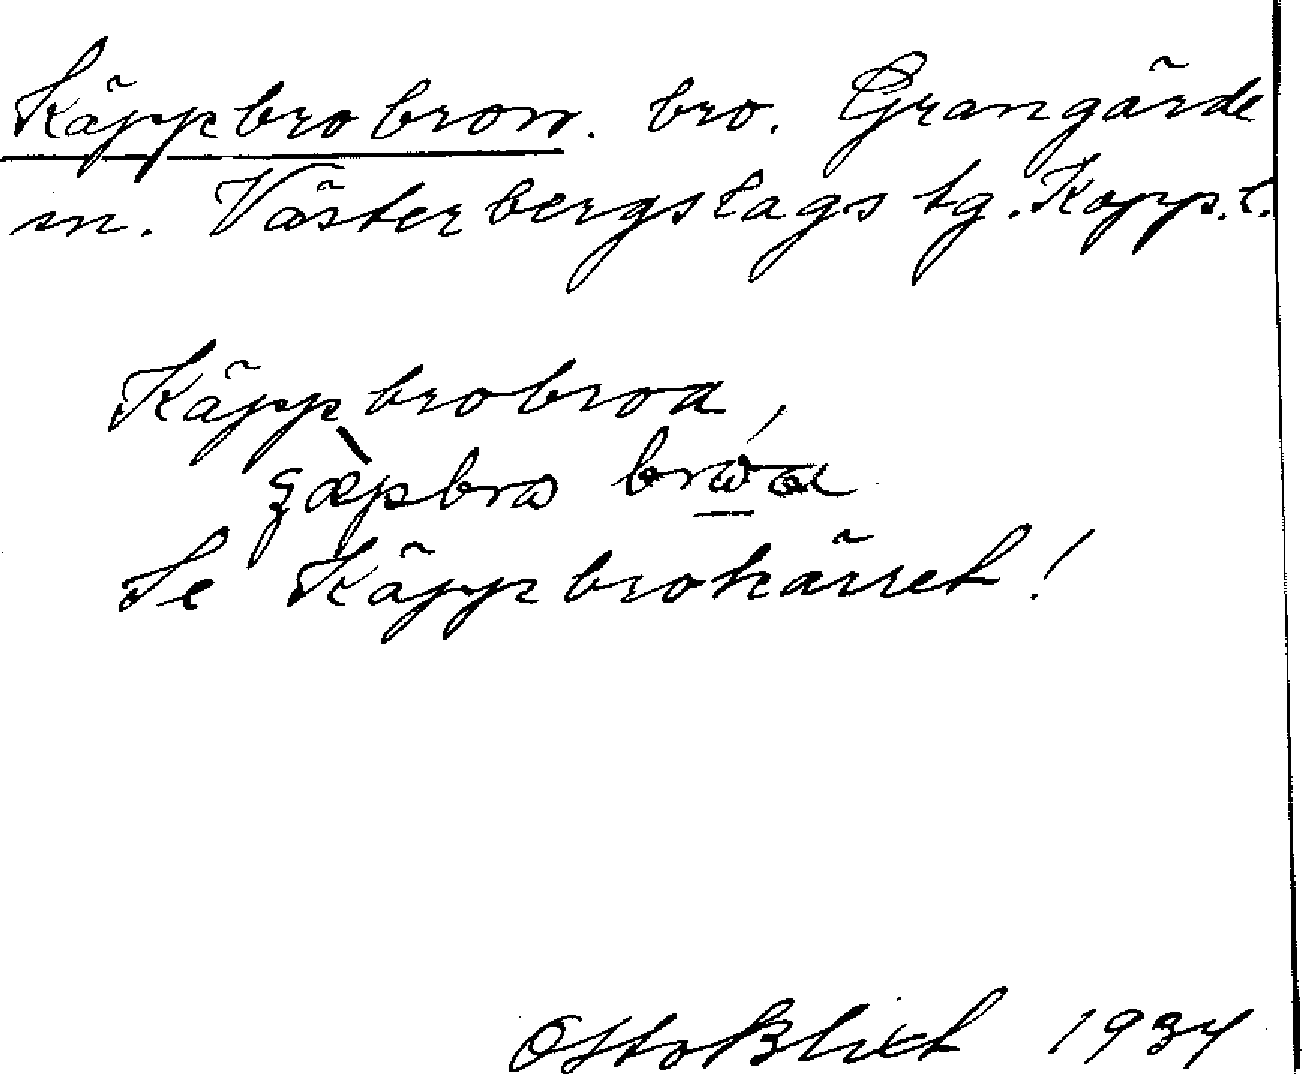 Käppbrobron. bro. Grangärde
m. Västerbergslags tg. Kopp. l.
Käppbrobroa,
Se Käppbrokärret!
Otto Blixt 1934